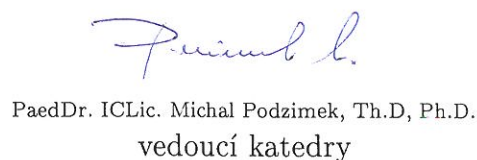 PaedDr. ICLic. Michal Podzimek, Th.D, Ph.D.
vedoucí katedry